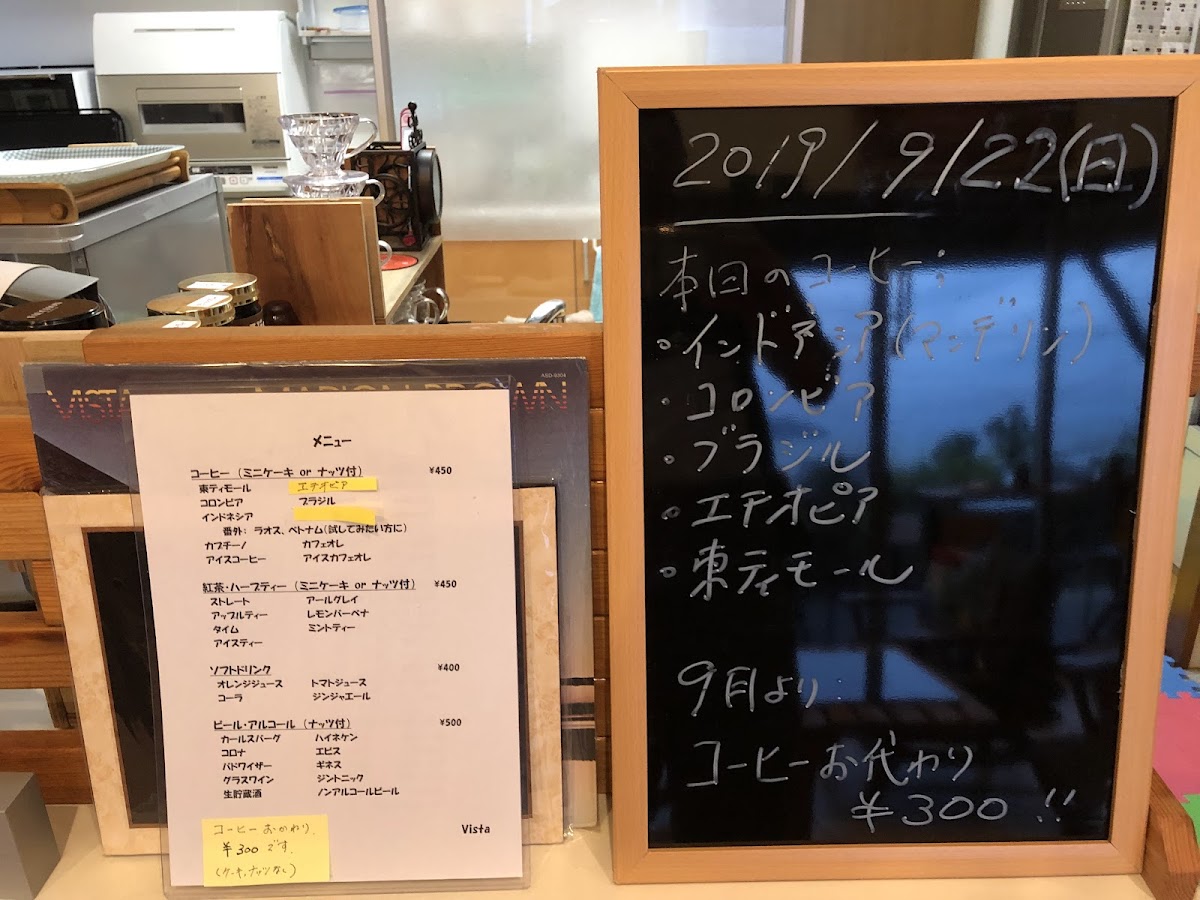 VISTA MARION BROWN
メニュー
コーヒー (ミニケーキ or ナッツ付) ¥450
東ティモール エチオピア
コロンビア ブラジル
インドネシア
番外: ラオス、ベトナム(試してみたい方に)
カプチーノ カフェオレ
アイスコーヒー アイスカフェオレ
紅茶・ハーブティー (ミニケーキ or ナッツ付) ¥450
ストレート アールグレイ
アップルティー レモンバーベナ
タイム ミントティー
アイスティー
ソフトドリンク ¥400
オレンジジュース トマトジュース
コーラ ジンジャエール
ビール・アルコール (ナッツ付) ¥500
カールスバーグ ハイネケン
コロナ エビス
バドワイザー ギネス
グラスワイン ジントニック
生貯蔵酒 ノンアルコールビール
Vista
コーヒーおかわり
¥300 です.
(ケーキ,ナッツなし)
2019/9/22(日)
本日のコーヒー;
・インドアジア(マンデリン)
・コロンビア
・ブラジル
・エチオピア
・東ティモール
9月より
コーヒーお代わり
¥300 !!